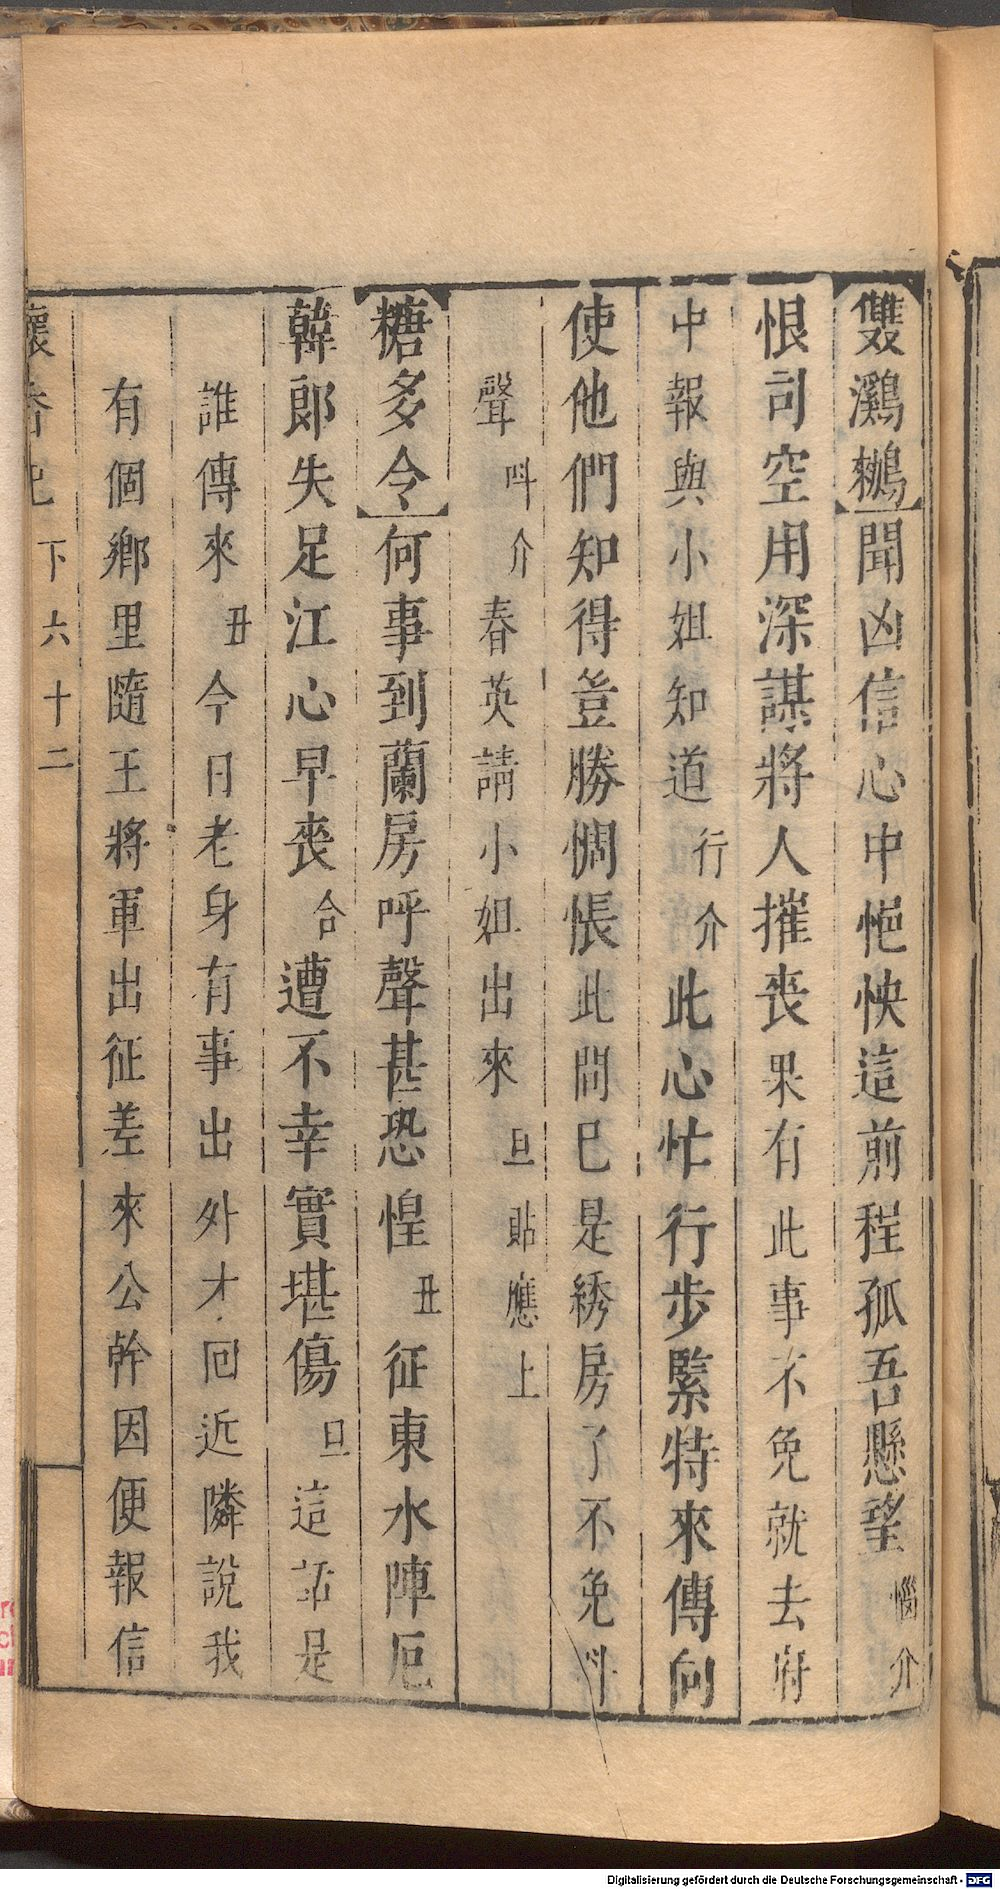 雙鸂鶒聞凶信心中悒怏這前程孤吾懸望惱介
恨司空用深謀將人摧喪果有此事不免就去府
中報與小姐知道行介此心忙行步緊特來傳向
使他們知得豈勝惆悵此問已是綉房了不免叫
聲呌介春英請小姐出來旦貼應上
糖多令何事到蘭房呼聲甚恐惶丑征東水陣厄
韓郎失足江心早喪合遭不幸實堪傷旦這話是
誰傳來丑今日老身有事出外才回近隣說我
有個鄉里隨王將軍出征差來公幹因便報信
下六十二
Digitalisierung gefördert durch die Deutsche Forschungsgemeinschaft - DFG